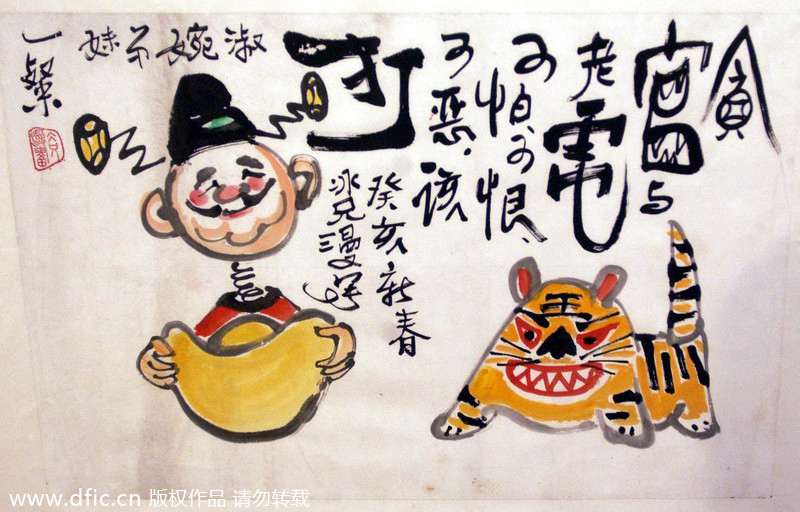 贪官与
老虎
可怕、可恨、
可恶、该
打
癸亥新春
冰兄漫写
淑婉弟妹
一粲
www.dfic.cn 版权作品 请勿转载